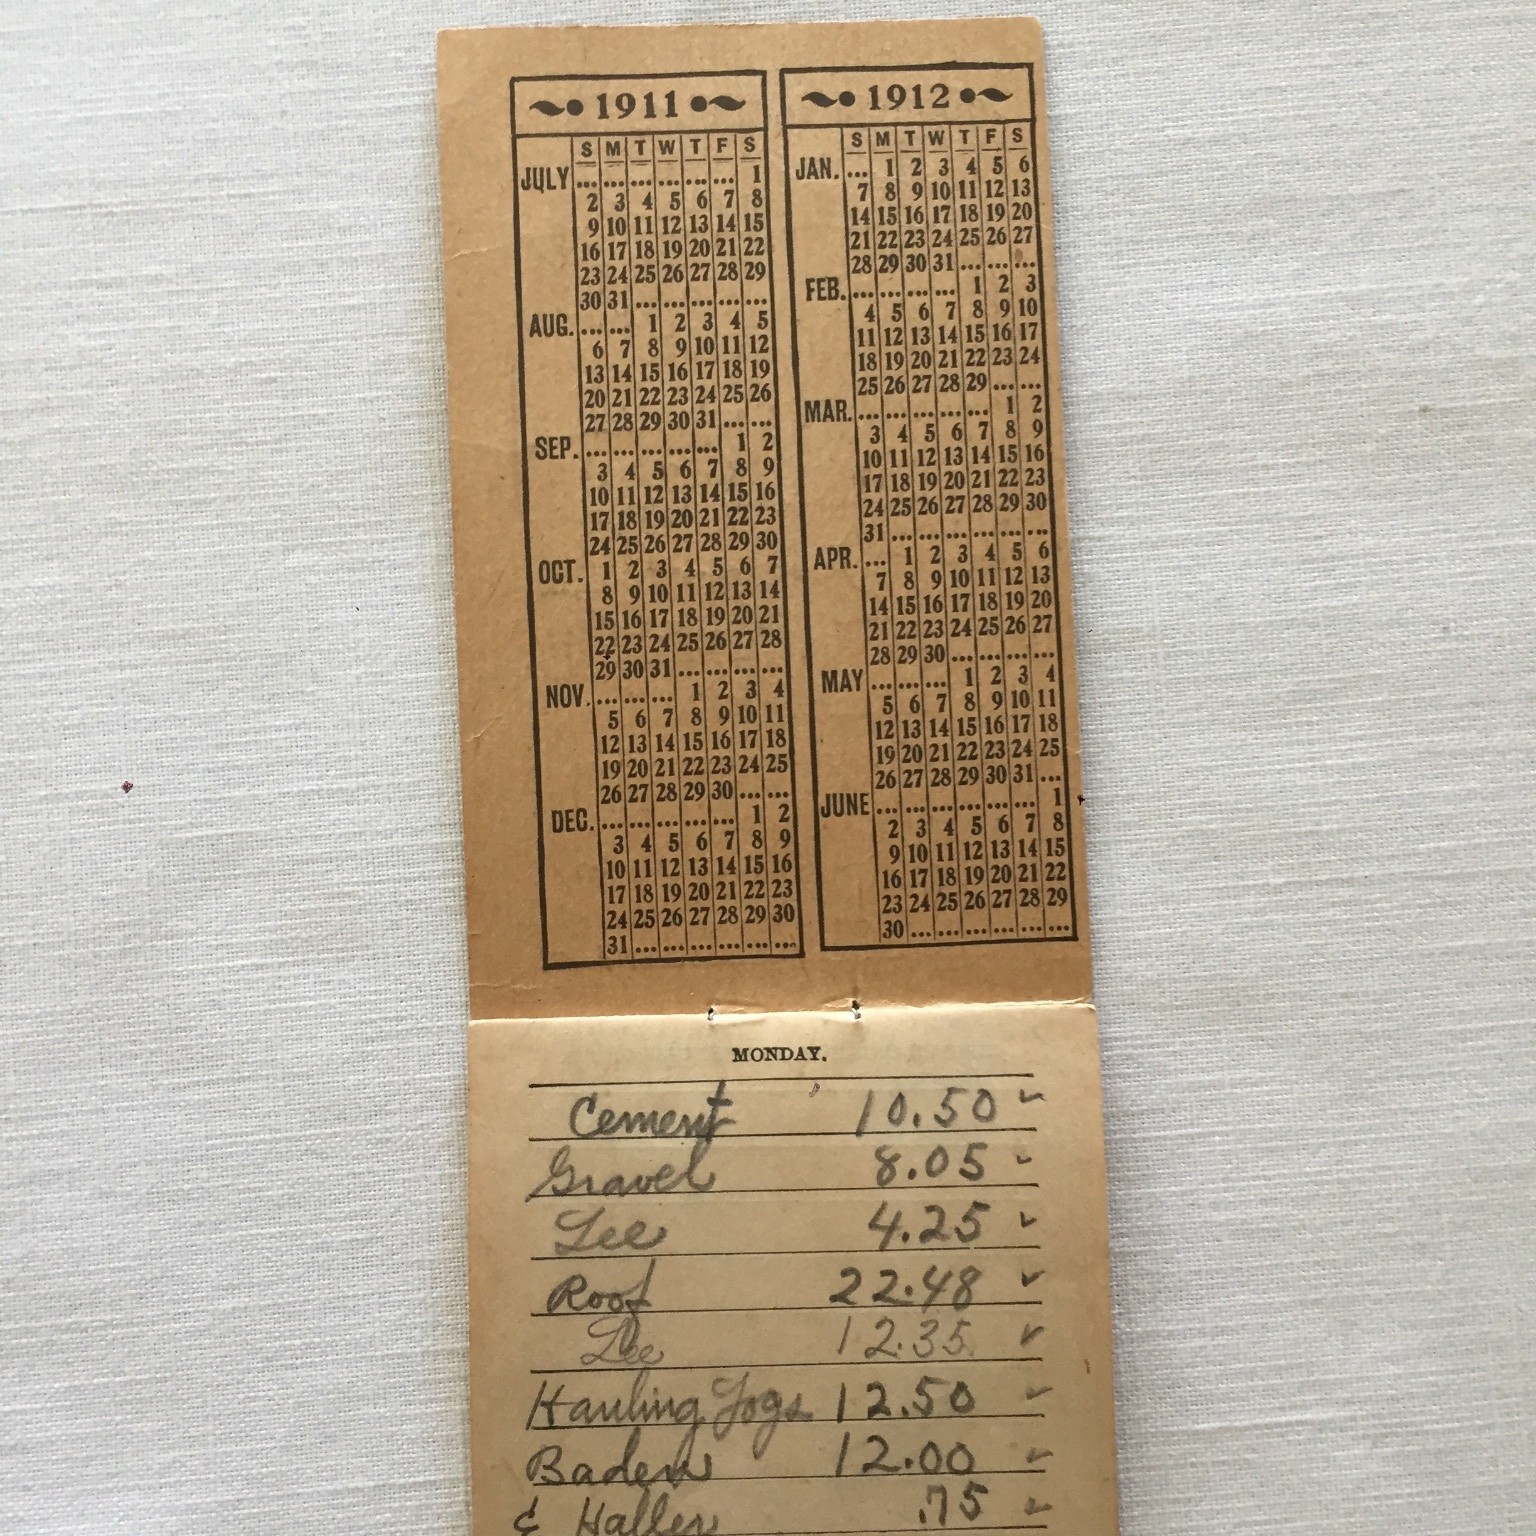 1911
S M T W T F S
JULY ... ... ... ... ... ... 1
2 3 4 5 6 7 8
9 10 11 12 13 14 15
16 17 18 19 20 21 22
23 24 25 26 27 28 29
30 31 ... ... ... ... ...
AUG. ... ... 1 2 3 4 5
6 7 8 9 10 11 12
13 14 15 16 17 18 19
20 21 22 23 24 25 26
27 28 29 30 31 ... ...
SEP. ... ... ... ... ... 1 2
3 4 5 6 7 8 9
10 11 12 13 14 15 16
17 18 19 20 21 22 23
24 25 26 27 28 29 30
OCT. 1 2 3 4 5 6 7
8 9 10 11 12 13 14
15 16 17 18 19 20 21
22 23 24 25 26 27 28
29 30 31 ... ... ... ...
NOV. ... ... ... 1 2 3 4
5 6 7 8 9 10 11
12 13 14 15 16 17 18
19 20 21 22 23 24 25
26 27 28 29 30 ... ...
DEC. ... ... ... ... ... 1 2
3 4 5 6 7 8 9
10 11 12 13 14 15 16
17 18 19 20 21 22 23
24 25 26 27 28 29 30
31 ... ... ... ... ... ...
1912
S M T W T F S
JAN. ... 1 2 3 4 5 6
7 8 9 10 11 12 13
14 15 16 17 18 19 20
21 22 23 24 25 26 27
28 29 30 31 ... ... ...
FEB. ... ... ... ... 1 2 3
4 5 6 7 8 9 10
11 12 13 14 15 16 17
18 19 20 21 22 23 24
25 26 27 28 29 ... ...
MAR. ... ... ... ... ... 1 2
3 4 5 6 7 8 9
10 11 12 13 14 15 16
17 18 19 20 21 22 23
24 25 26 27 28 29 30
31 ... ... ... ... ... ...
APR. ... 1 2 3 4 5 6
7 8 9 10 11 12 13
14 15 16 17 18 19 20
21 22 23 24 25 26 27
28 29 30 ... ... ... ...
MAY ... ... ... 1 2 3 4
5 6 7 8 9 10 11
12 13 14 15 16 17 18
19 20 21 22 23 24 25
26 27 28 29 30 31 ...
JUNE ... ... ... ... ... ... 1
2 3 4 5 6 7 8
9 10 11 12 13 14 15
16 17 18 19 20 21 22
23 24 25 26 27 28 29
30 ... ... ... ... ... ...
MONDAY.
Cement 10.50 ✓
Gravel 8.05 ✓
Lee 4.25 ✓
Roof 22.48 ✓
Lee 12.35 ✓
Hauling 12.50 ✓
Baden 12.00 ✓
& Haller .75 ✓